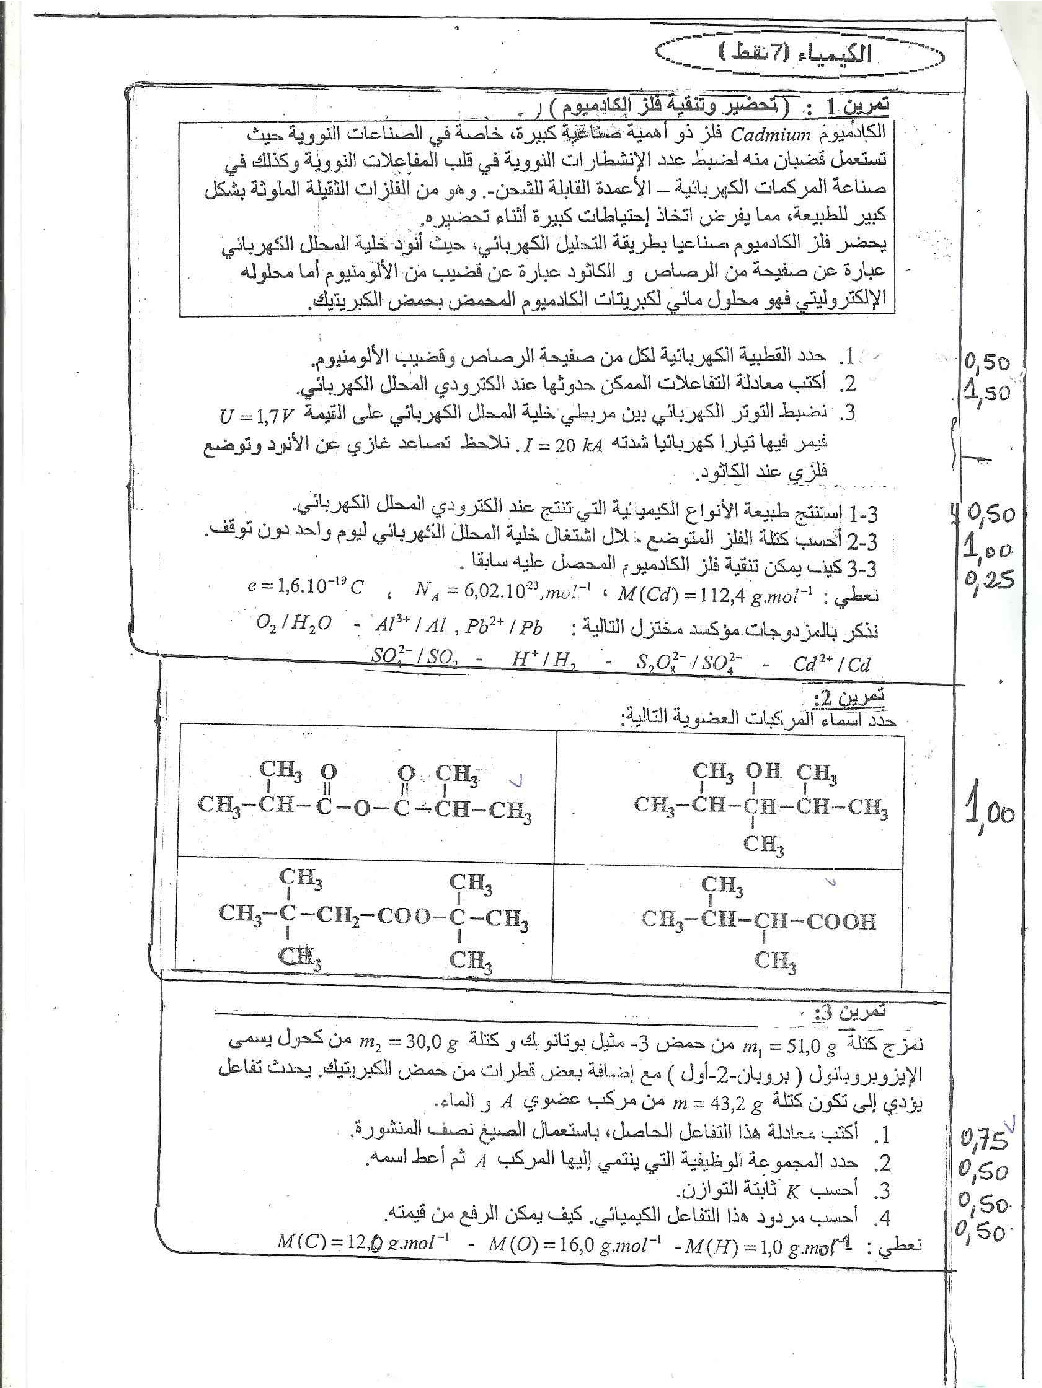 الكيمياء (7 نقط)
تمرين 1 : (تحضير وتنقية فلز الكادميوم)
الكادميوم Cadmium فلز ذو أهمية صناعية كبيرة، خاصة في الصناعات النووية حيث
تستعمل قضبان منه لضبط عدد الإنشطارات النووية في قلب المفاعلات النووية وكذلك في
صناعة المركمات الكهربائية – الأعمدة القابلة للشحن-. وهو من الفلزات الثقيلة الملوثة بشكل
كبير للطبيعة، مما يفرض اتخاذ إحتياطات كبيرة أثناء تحضيره.
يحضر فلز الكادميوم صناعيا بطريقة التحليل الكهربائي، حيث أنود خلية المحلل الكهربائي
عبارة عن صفيحة من الرصاص و الكاثود عبارة عن قضيب من الألومنيوم أما محلوله
الإلكتروليتي فهو محلول مائي لكبريتات الكادميوم المحمض بحمض الكبريتيك.
1. حدد القطبية الكهربائية لكل من صفيحة الرصاص وقضيب الألومنيوم. 0,50
2. أكتب معادلة التفاعلات الممكن حدوثها عند الكترودي المحلل الكهربائي. 1,50
3. نضبط التوتر الكهربائي بين مربطي خلية المحلل الكهربائي على القيمة U = 1,7 V
فيمر فيها تيارا كهربائيا شدته I = 20 kA. نلاحظ تصاعد غازي عن الأنود وتوضع
فلزي عند الكاثود.
3-1 استنتج طبيعة الأنواع الكيميائية التي تنتج عند الكترودي المحلل الكهربائي. 0,50
3-2 أحسب كتلة الفلز المتوضع خلال اشتغال خلية المحلل الكهربائي ليوم واحد دون توقف. 1,00
3-3 كيف يمكن تنقية فلز الكادميوم المحصل عليه سابقا . 0,25
نعطي : M(Cd) = 112,4 g.mol⁻¹ ، N_A = 6,02.10²³.mol⁻¹ ، e = 1,6.10⁻¹⁹ C
نذكر بالمزدوجات مؤكسد مختزل التالية : Pb²⁺/Pb , Al³⁺/Al - O₂/H₂O
Cd²⁺/Cd - S₂O₈²⁻/SO₄²⁻ - H⁺/H₂ - SO₄²⁻/SO₂
تمرين 2:
حدد اسماء المركبات العضوية التالية:
CH₃ O O CH₃
CH₃–CH–C–O–C–CH–CH₃
CH₃ OH CH₃
CH₃–CH–CH–CH–CH₃ 1,00
CH₃
CH₃ CH₃
CH₃–C–CH₂–COO–C–CH₃
CH₃ CH₃
CH₃
CH₃–CH–CH–COOH
CH₃
تمرين 3:
نمزج كتلة m₁ = 51,0 g من حمض 3- مثيل بوتانويك و كتلة m₂ = 30,0 g من كحول يسمى
الإيزوبروبانول ( بروبان-2-أول ) مع إضافة بعض قطرات من حمض الكبريتيك. يحدث تفاعل
يؤدي إلى تكون كتلة m = 43,2 g من مركب عضوي A و الماء.
1. أكتب معادلة هذا التفاعل الحاصل، باستعمال الصيغ نصف المنشورة. 0,75
2. حدد المجموعة الوظيفية التي ينتمي إليها المركب A ثم أعط اسمه. 0,50
3. أحسب K ثابتة التوازن. 0,50
4. أحسب مردود هذا التفاعل الكيميائي. كيف يمكن الرفع من قيمته. 0,50
نعطي : M(H) = 1,0 g.mol⁻¹ - M(O) = 16,0 g.mol⁻¹ - M(C) = 12,0 g.mol⁻¹